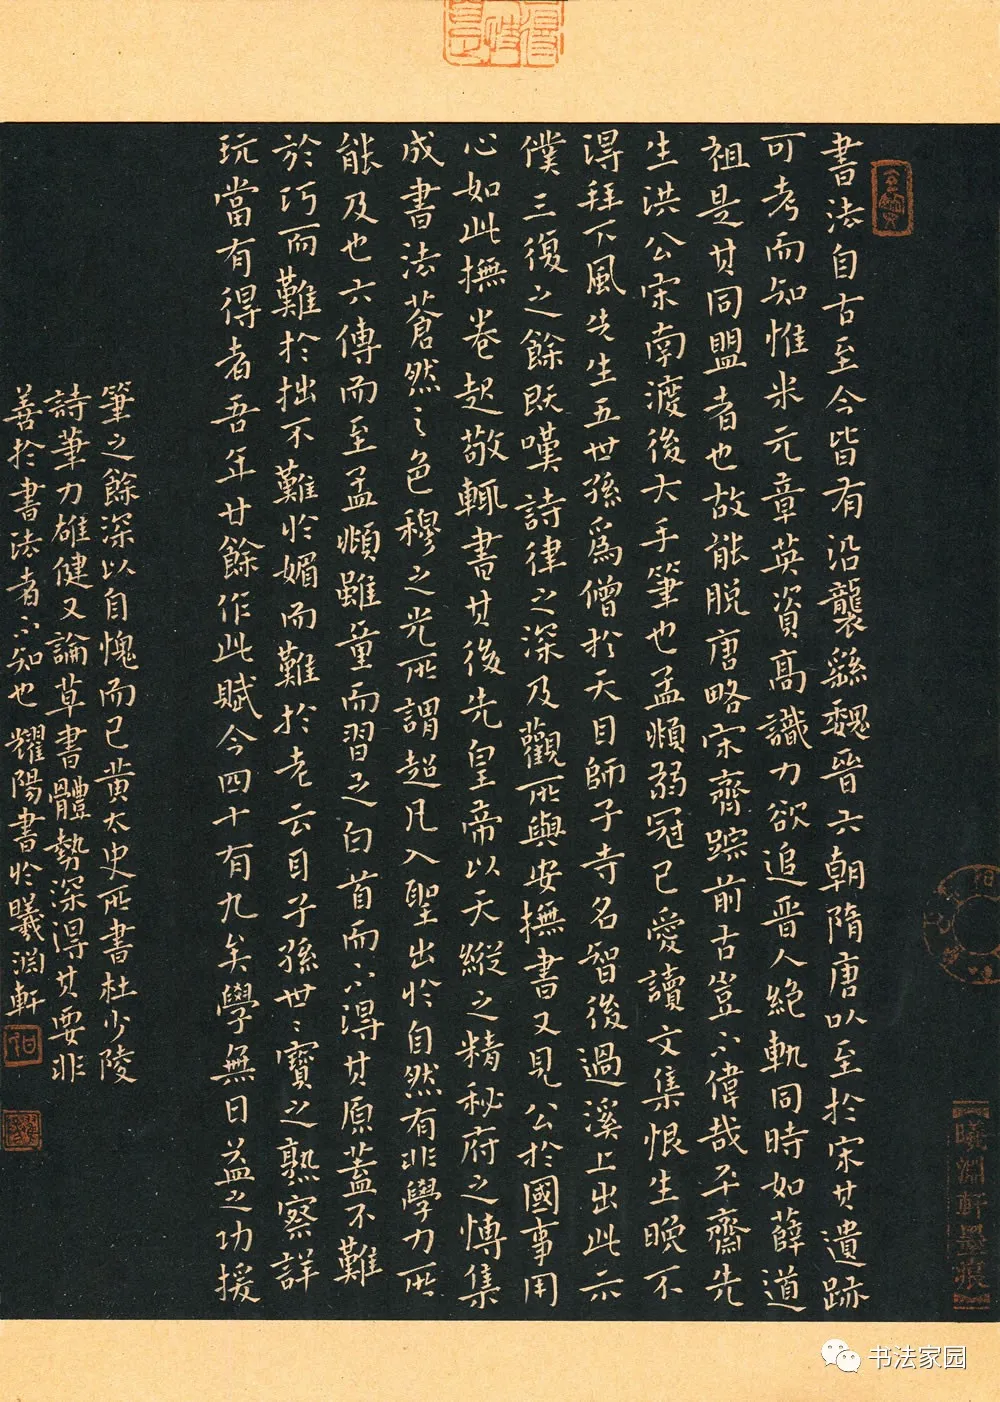 書法自古至今皆有沿襲繇魏晉六朝隋唐以至於宋其遺跡
可考而知惟米元章英資高識力欲追晋人絶軌同時如薛道
祖是其同盟者也故能脱唐略宋齊踪前古豈不偉哉平齋先
生洪公宋南渡後大手筆也孟頫弱冠已愛讀文集恨生晚不
得拜下風先生五世孫爲僧於天目師子寺名智後過溪上出此示
僕三復之餘既嘆詩律之深及觀所與安撫書又見公於國事用
心如此撫卷起敬輒書其後先皇帝以天縱之精秘府之博集
成書法蒼然之色穆之光所謂超凡入聖出於自然有非學力所
能及也六傳而至孟頫雖童而習之白首而不得其原蓋不難
於巧而難於拙不難於媚而難於老云目子孫世〻寶之熟察詳
玩當有得者吾年廿餘作此賦今四十有九矣學無日益之功援
筆之餘深以自愧而已黄太史所書杜少陵
詩筆力雄健又論草書體勢深得其要非
善於書法者不知也耀陽書於曦淵軒
曦淵軒墨痕
书法家园